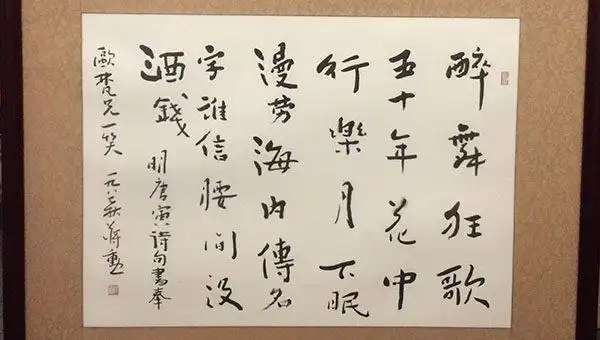 醉舞狂歌
五十年花中
行樂月下眠
漫勞海內傳名
字誰信腰間沒
酒錢 明唐寅詩句書奉
歐梵兄一笑 一九八秋蔣勳